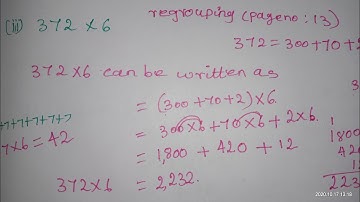 (ii) 372 x 6
regrouping (page no : 13)
372 = 300+70+2
372 x 6 can be written as
= (300 +70 +2) x 6
+7+7+7+7+7
= 300 x 6 + 70 x 6 + 2 x 6
7 x 6 = 42
= 1,800 + 420 + 12
372 x 6 = 2,232
1
1800
420
12
2232
2020.10.17 13:18